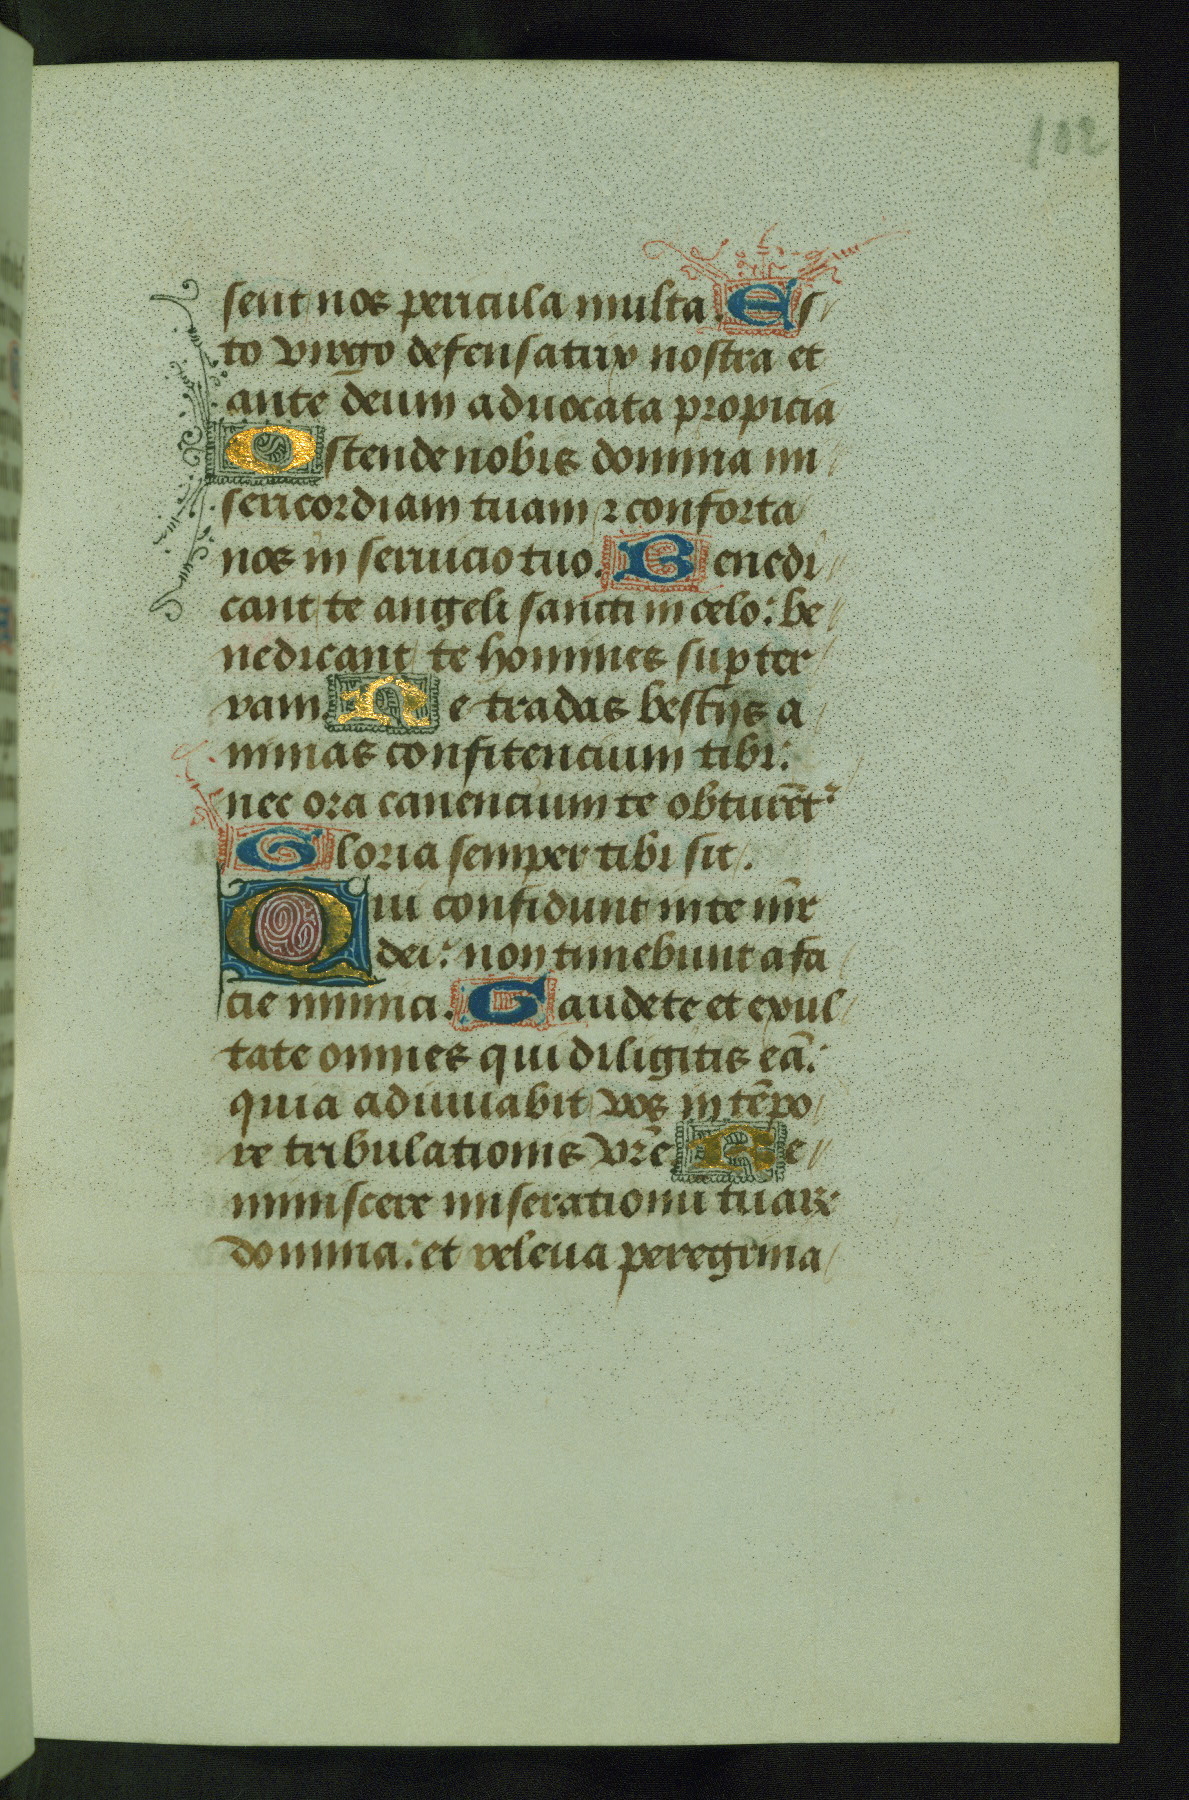 102
sent nos pericula multa. Es
to virgo defensatrix nostra et
ante deum aduocata propicia
Ostende nobis domina mi
sericordiam tuam ⁊ conforta
nos in seruicio tuo. Benedi
cant te angeli sancti in celo: be
nedicant te homines sup ter
ram. Ne tradas bestijs a
nimas confitencium tibi:
nec ora canencium te obturēt᷑
Gloria semper tibi sit.
Qui confidunt in te mr̄
dei: non timebunt a fa
cie inimici. Gaudete et exul
tate omnes qui diligitis eā:
quia adiuuabit vos in tēpo
re tribulationis vr̄e. Re
miniscere miserationū tuaꝝ
domina: et releua peregrina